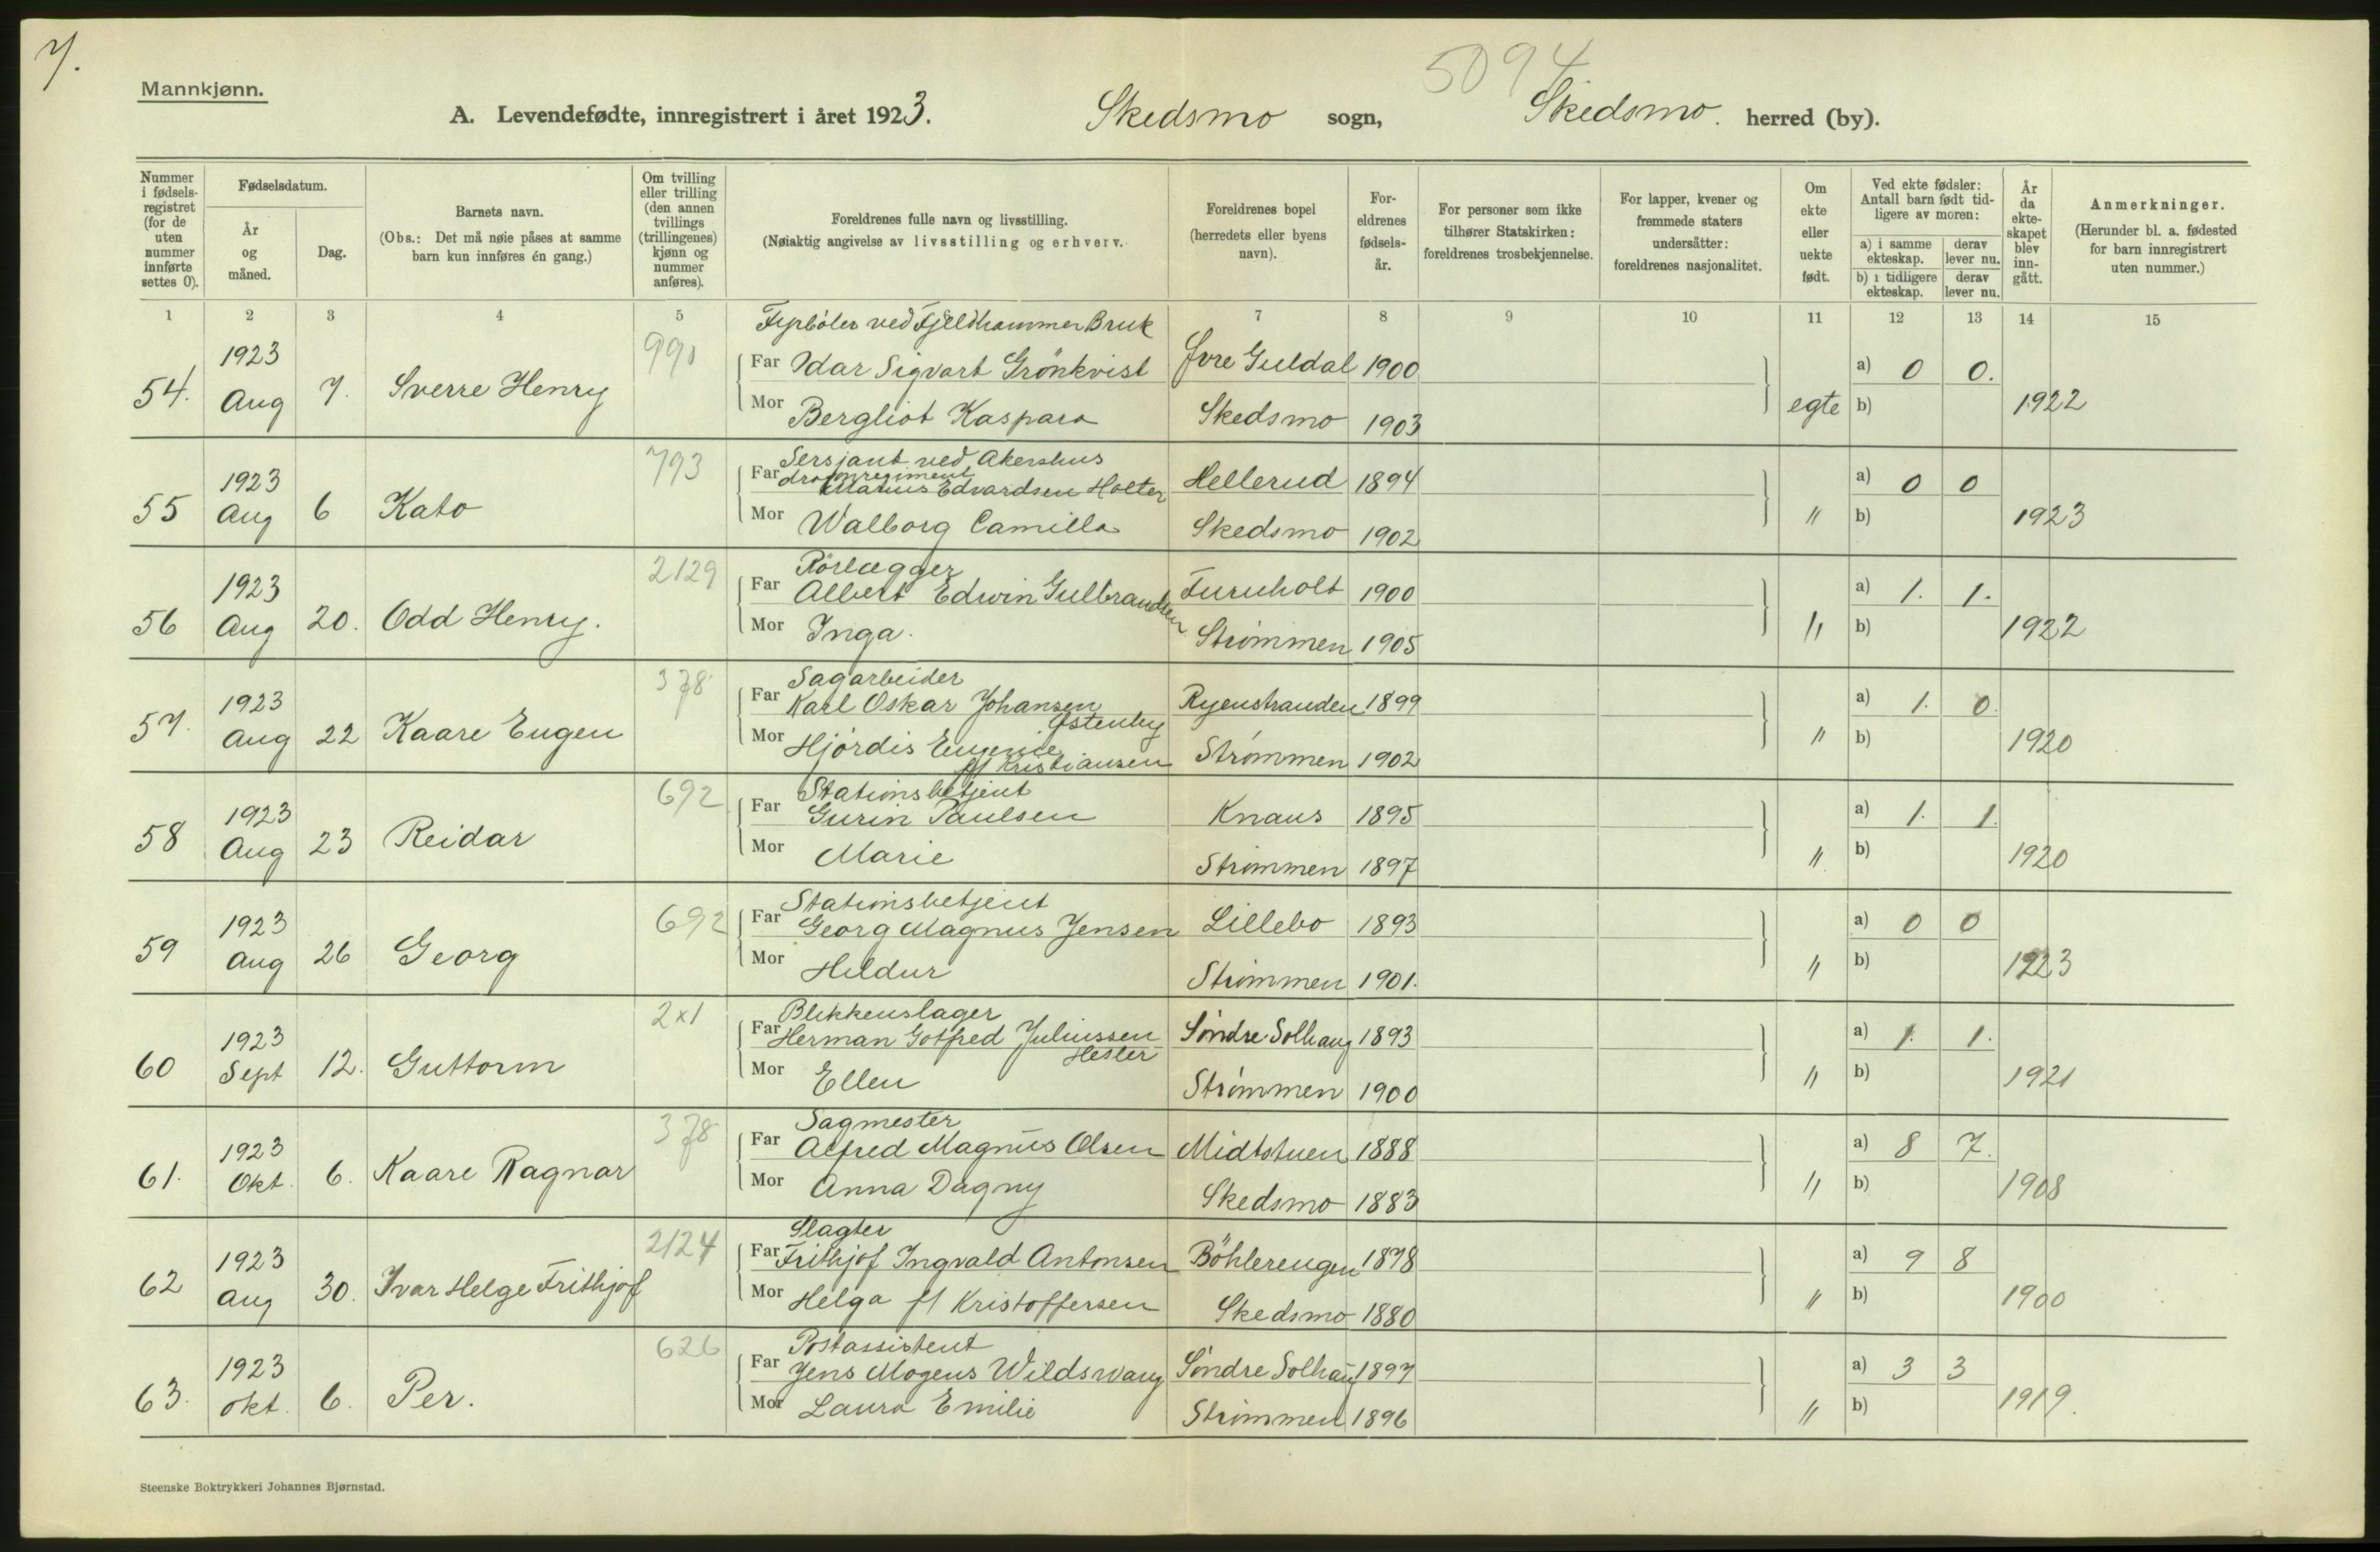 7.
5094
Mannkjønn.
A. Levendefødte, innregistrert i året 1923. Skedsmo sogn, Skedsmo. herred (by).
Nummer i fødsels-registret (for de uten nummer innførte settes 0).
Fødselsdatum.
År og måned.
Dag.
Barnets navn.
(Obs.: Det må nøie påses at samme barn kun innføres én gang.)
Om tvilling eller trilling (den annen tvillings (trillingenes) kjønn og nummer anføres).
Foreldrenes fulle navn og livsstilling.
(Nøiaktig angivelse av livsstilling og erhverv.
Foreldrenes bopel (herredets eller byens navn).
For-eldrenes fødsels-år.
For personer som ikke tilhører Statskirken: foreldrenes trosbekjennelse.
For lapper, kvener og fremmede staters undersåtter: foreldrenes nasjonalitet.
Om ekte eller uekte født.
Ved ekte fødsler: Antall barn født tid-ligere av moren:
a) i samme ekteskap. derav lever nu.
b) i tidligere ekteskap. derav lever nu.
År da ekte-skapet blev inn-gått.
Anmerkninger.
(Herunder bl. a. fødested for barn innregistrert uten nummer.)
1 2 3 4 5 7 8 9 10 11 12 13 14 15
Fyrbøter ved Fjeldhammer Bruk
990
54. 1923 Aug 7. Sverre Henry
Far Idar Sigvart Grönkvist Øvre Guldal 1900 a) 0 0.
Mor Bergliot Kaspara Skedsmo 1903 egte b) 1922
793
Sersjant ved Akershus
55 1923 Aug 6 Kato
Far Marius Edvardsen Holter Hellerud 1894 a) 0 0
Mor Walborg Camilla Skedsmo 1902 " b) 1923
2129
Rörlægger
56 1923 Aug 20. Odd Henry.
Far Albert Edwin Gulbrandsen Furuholt 1900 a) 1. 1.
Mor Inga. Strømmen 1905 " b) 1922
378
Sagarbeider
57. 1923 Aug 22 Kaare Eugen
Far Karl Oskar Johansen Østenby Ryenstranden 1899 a) 1. 0.
Mor Hjördis Eugenie ff Kristiansen Strømmen 1902 " b) 1920
692
Stationsbetjent
58 1923 Aug 23 Reidar
Far Gurin Paulsen Knaus 1895 a) 1. 1.
Mor Marie Strømmen 1897 " b) 1920
692
Stationsbetjent
59 1923 Aug 26 Georg
Far Georg Magnus Jensen Lillebo 1893 a) 0 0
Mor Hildur Strømmen 1901. " b) 1923
2x1
Blikkenslager
60 1923 Sept 12. Guttorm
Far Herman Gotfred Juliussen Hester Søndre Solhaug 1893 a) 1. 1.
Mor Ellen Strømmen 1900 " b) 1921
378
Sagmester
61. 1923 Okt. 6. Kaare Ragnar
Far Alfred Magnus Olsen Midtstuen 1888 a) 8 7.
Mor Anna Dagny Skedsmo 1883 " b) 1908
2124
Slagter
62 1923 Aug 30. Ivar Helge Frithjof
Far Frithjof Ingvald Antonsen Böhlerengen 1878 a) 9 8
Mor Helga ff Kristoffersen Skedsmo 1880 " b) 1900
626
Postassistent
63. 1923 okt. 6. Per.
Far Jens Mogens Wildswang Søndre Solhaug 1897 a) 3 3
Mor Laura Emilie Strømmen 1896 " b) 1919.
Steenske Boktrykkeri Johannes Bjørnstad.